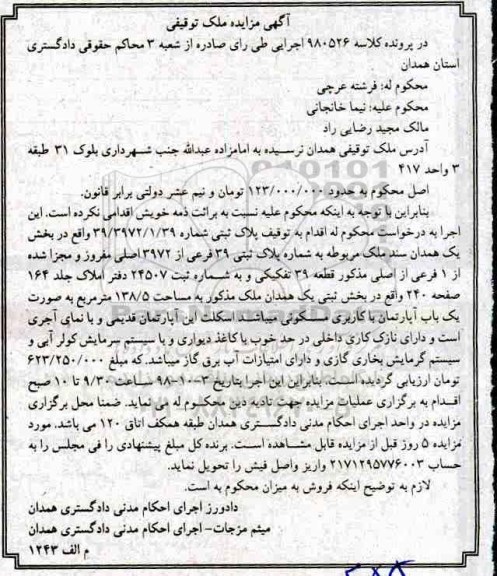 آگهی مزایده ملک توقیفی
در پرونده کلاسه ۹۸۰۵۲۶ اجرایی طی رای صادره از شعبه ۳ محاکم حقوقی دادگستری
استان همدان
محکوم له: فرشته عرچی
محکوم علیه: نیما خانجانی
مالک مجید رضایی راد
آدرس ملک توقیفی همدان نرسیده به امامزاده عبدالله جنب شهرداری بلوک ۳۱ طبقه
۳ واحد ۴۱۷
اصل محکوم به حدود ۱۲۳/۰۰۰/۰۰۰ تومان و نیم عشر دولتی برابر قانون.
بنابراین با توجه به اینکه محکوم علیه نسبت به برائت ذمه خویش اقدامی نکرده است. این
اجرا به درخواست محکوم له اقدام به توقیف پلاک ثبتی شماره ۳۹/۳۹۷۲/۱/۳۹ واقع در بخش
یک همدان سند ملک مربوطه به شماره پلاک ثبتی ۳۹ فرعی از ۳۹۷۲ اصلی مفروز و مجزا شده
از ۱ فرعی از اصلی مذکور قطعه ۳۹ تفکیکی و به شماره ثبت ۲۴۵۰۷ دفتر املاک جلد ۱۶۴
صفحه ۲۴۰ واقع در بخش ثبتی یک همدان ملک مذکور به مساحت ۱۳۸/۵ مترمربع به صورت
یک باب آپارتمان با کاربری مسکونی میباشد. اسکلت این آپارتمان قدیمی و با نمای آجری
است و دارای نازک کاری داخلی در حد خوب با کاغذ دیواری و با سیستم سرمایش کولر آبی و
سیستم گرمایش بخاری گازی و دارای امتیازات آب برق گاز میباشد. که مبلغ ۶۲۳/۲۵۰/۰۰۰
تومان ارزیابی گردیده است. بنابراین این اجرا بتاریخ ۳-۱۰-۹۸ ساعت ۹/۳۰ تا ۱۰ صبح
اقدام به برگزاری عملیات مزایده جهت تادیه دین محکوم له می نماید. ضمنا محل برگزاری
مزایده در واحد اجرای احکام مدنی دادگستری همدان طبقه همکف اتاق ۱۲۰ می باشد. مورد
مزایده ۵ روز قبل از مزایده قابل مشاهده است. برنده کل مبلغ پیشنهادی را فی مجلس را به
حساب ۲۱۷۱۲۹۵۷۷۶۰۰۳ واریز واصل فیش را تحویل نماید.
لازم به توضیح اینکه فروش به میزان محکوم به است.
دادورز اجرای احکام مدنی دادگستری همدان
میثم مزجات- اجرای احکام مدنی دادگستری همدان
م الف ۱۲۴۳